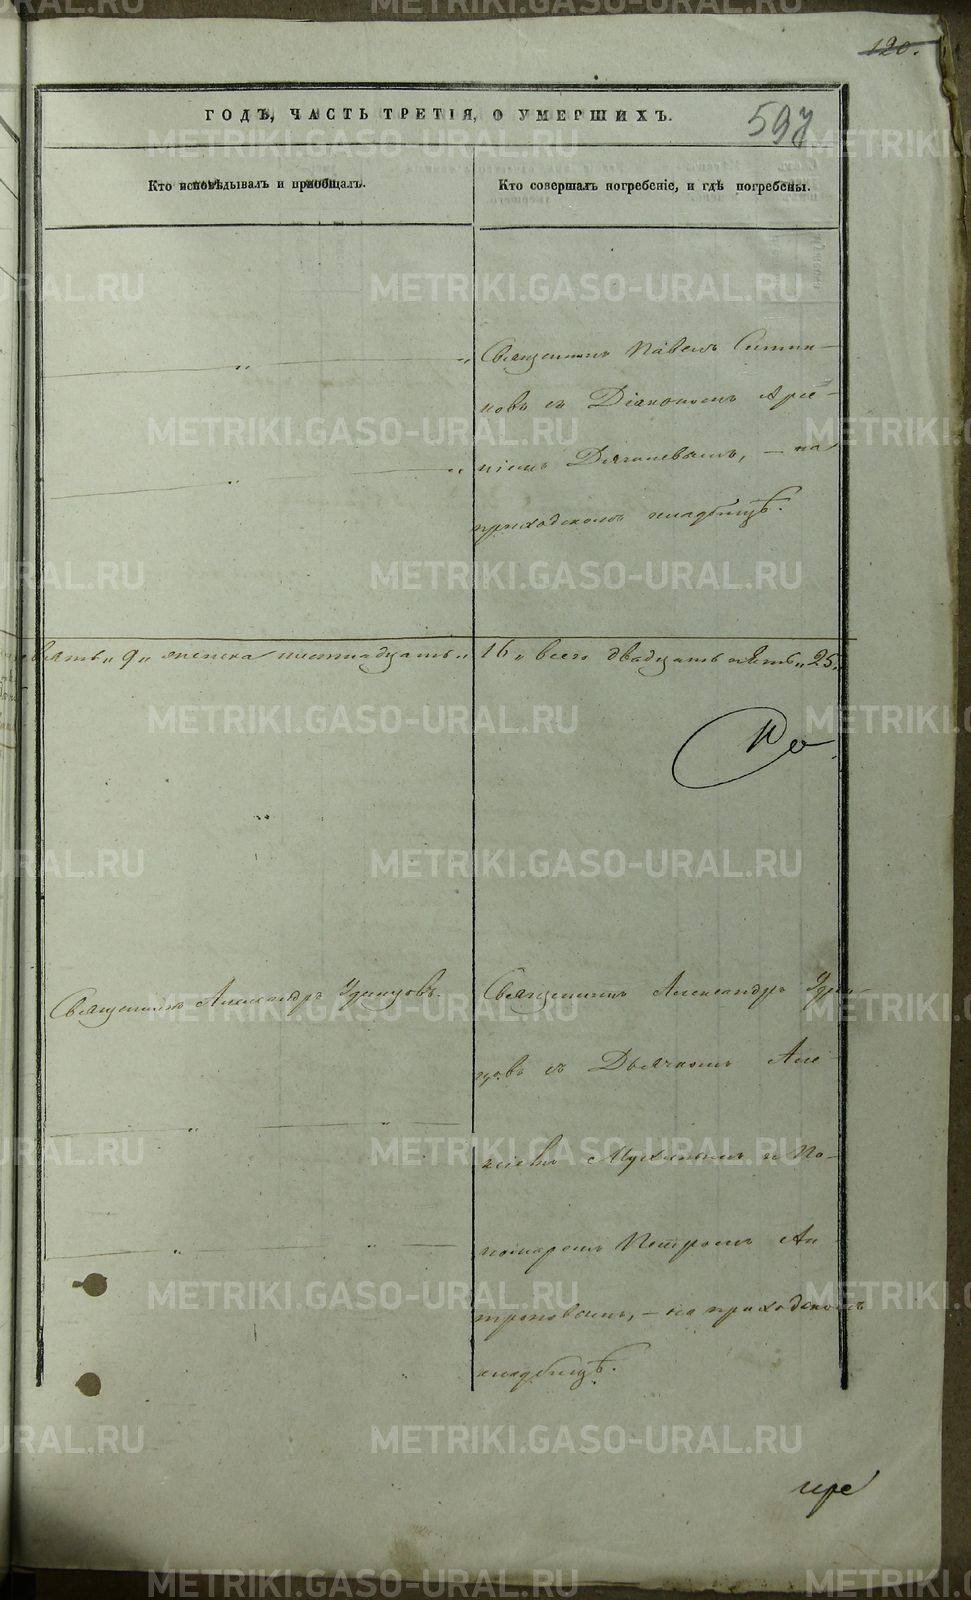 120.
ГОДЪ, ЧАСТЬ ТРЕТІЯ, О УМЕРШИХЪ.
597
Кто исповѣдывалъ и пріобщалъ.
Кто совершалъ погребеніе, и гдѣ погребены.
Священникъ Павелъ
новъ съ Діакономъ Арсе-
ніемъ Дягилевымъ, — на
приходскомъ кладбищѣ.
девять „9„ женска шестнадцать „16„ всего двадцать пять „25„
Священникъ Александръ Удинцовъ.
Священникъ Александръ Удин-
цовъ съ Дьячкомъ Але-
ксіемъ и По-
номаремъ Петромъ Ан-
троповымъ, — на приходскомъ
кладбищѣ.
METRIKI.GASO-URAL.RU